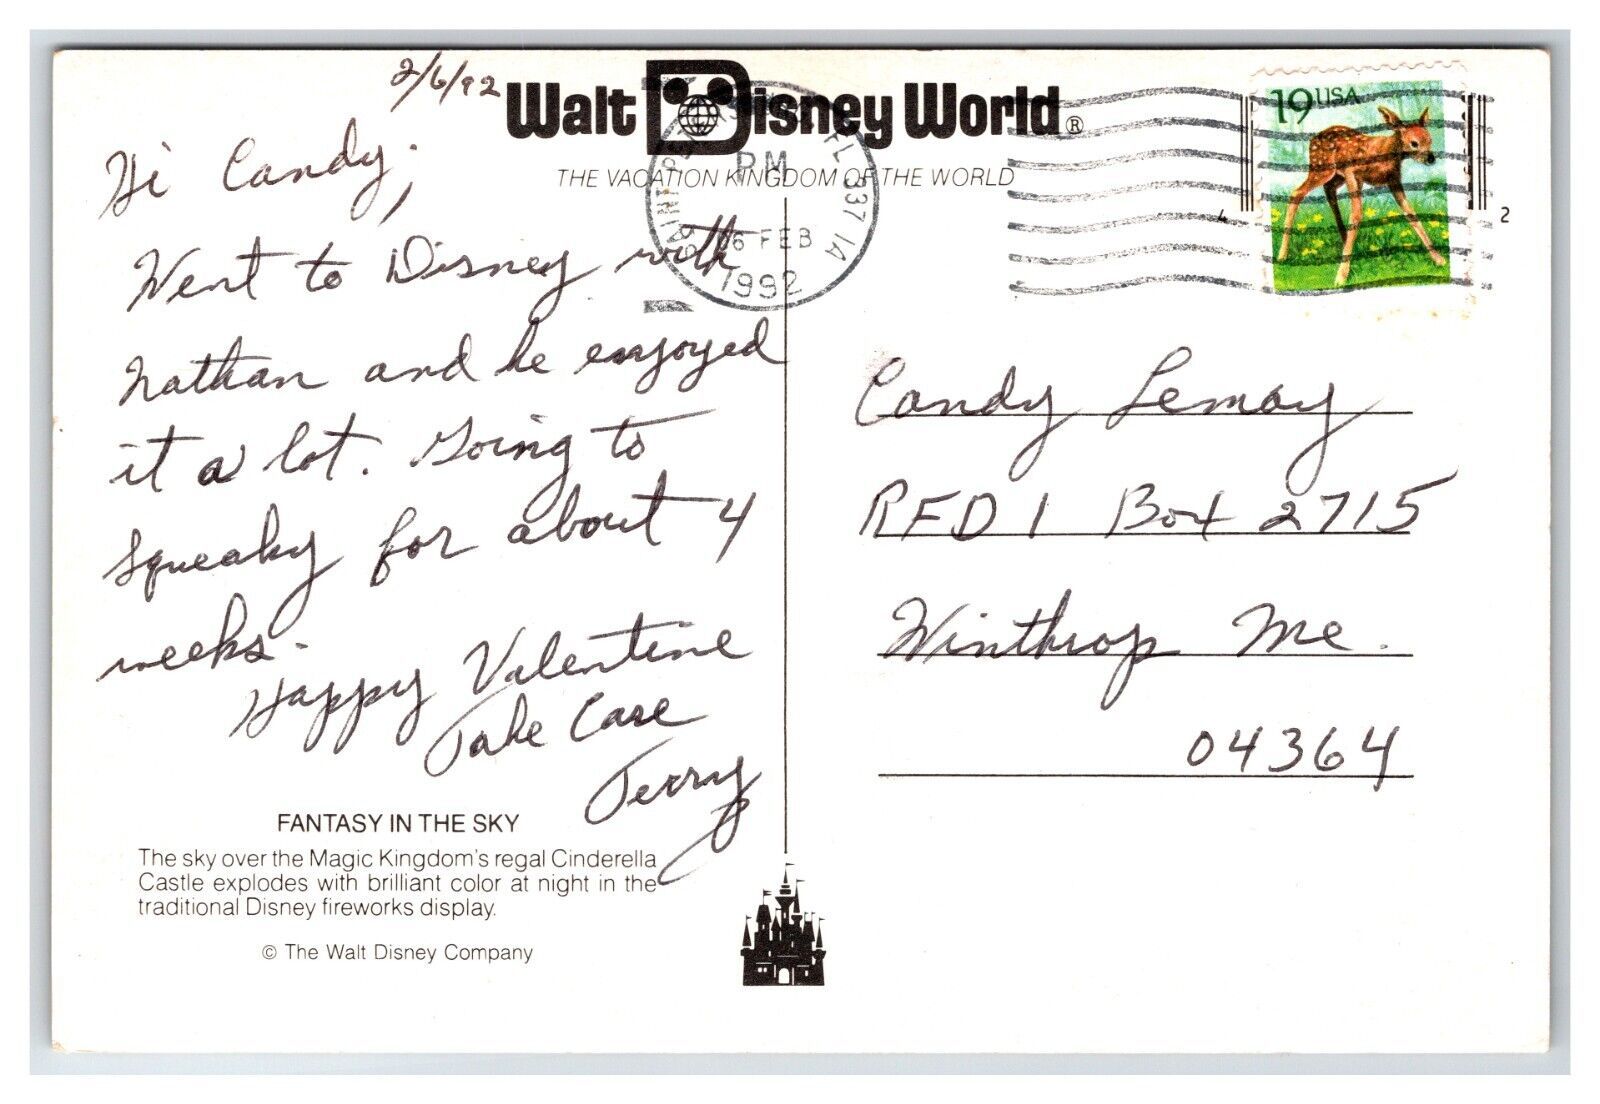 2/6/92
Walt Disney World®
THE VACATION KINGDOM OF THE WORLD
SAINT PETERSBURG FL 337 1A
PM
06 FEB
1992
19 USA
4
2
Hi Candy,
Went to Disney with
Nathan and he enjoyed
it a lot. Going to
Squeaky for about 4
weeks.
Happy Valentine
Take Care
Jerry
Candy Lemay
RFD 1 Box 2715
Winthrop Me.
04364
FANTASY IN THE SKY
The sky over the Magic Kingdom's regal Cinderella
Castle explodes with brilliant color at night in the
traditional Disney fireworks display.
© The Walt Disney Company